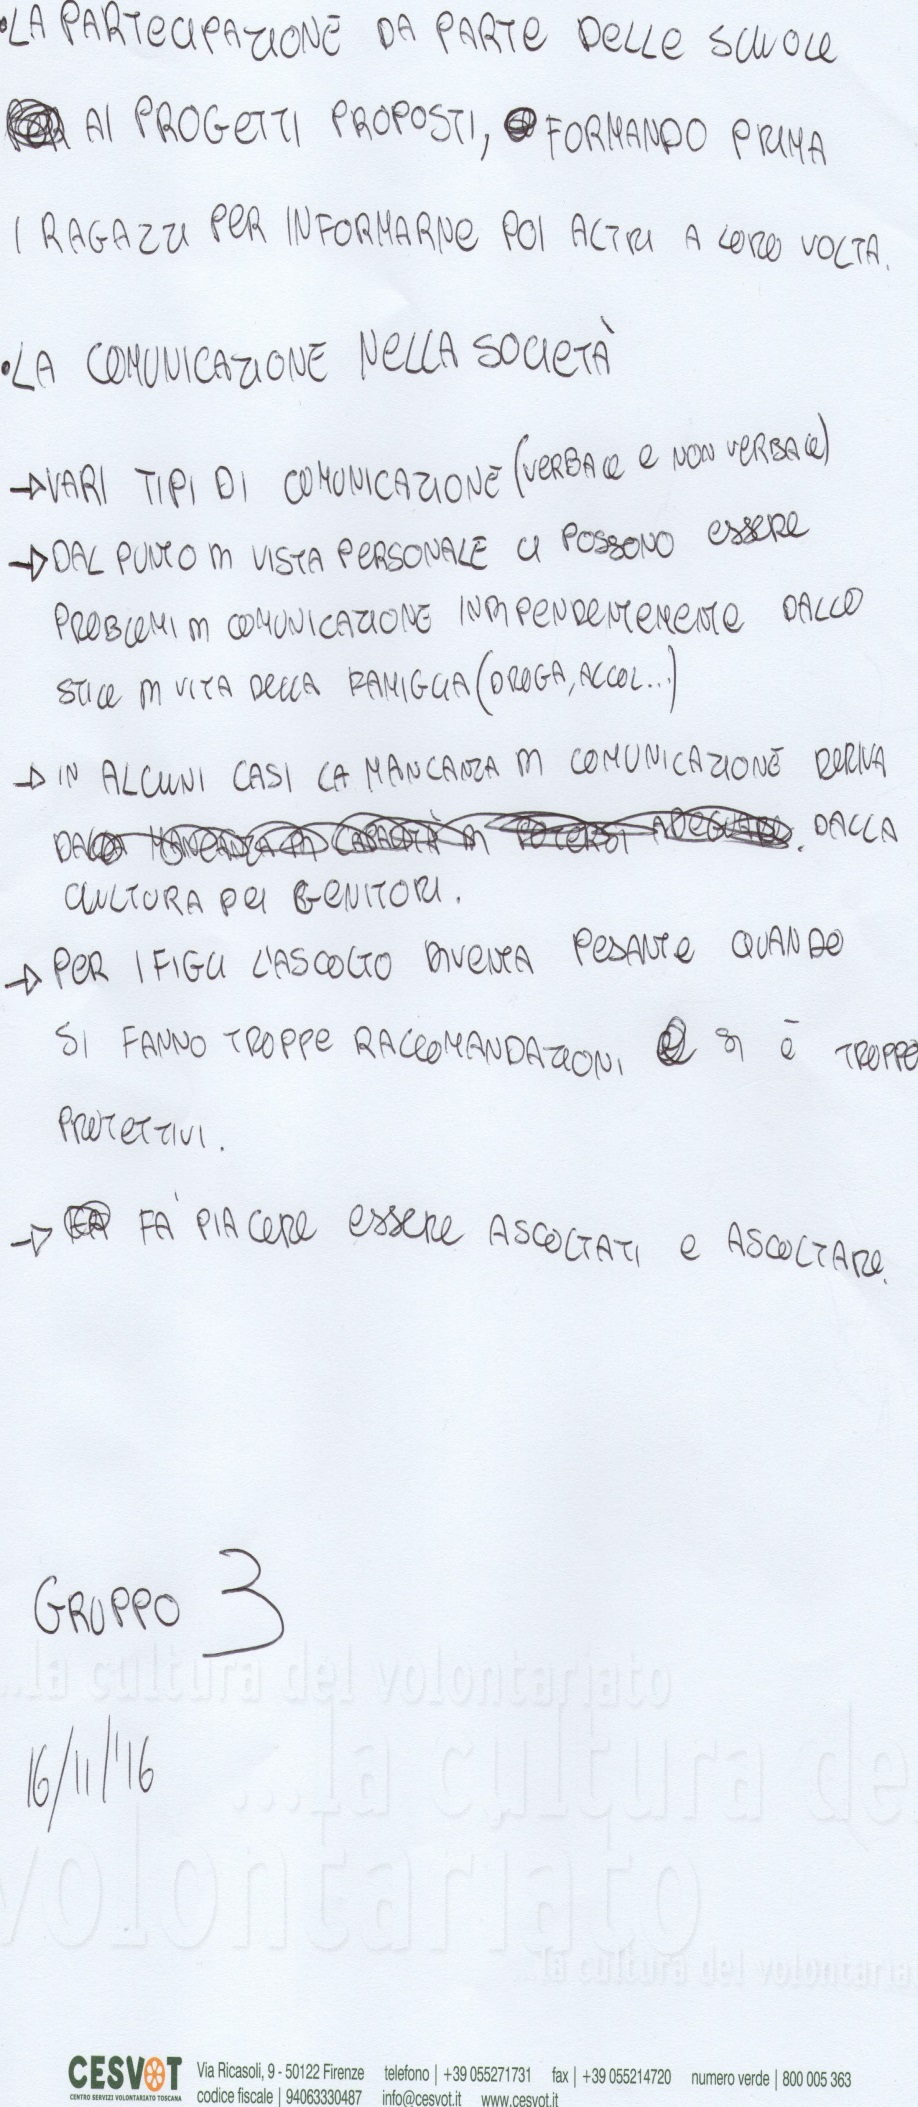 •LA PARTECIPAZIONE DA PARTE DELLE SCUOLE
AI PROGETTI PROPOSTI, FORMANDO PRIMA
I RAGAZZI PER INFORMARNE POI ALTRI A LORO VOLTA.
•LA COMUNICAZIONE NELLA SOCIETÀ
→VARI TIPI DI COMUNICAZIONE (VERBALE E NON VERBALE)
→DAL PUNTO DI VISTA PERSONALE CI POSSONO ESSERE
PROBLEMI DI COMUNICAZIONE INDIPENDENTEMENTE DALLO
STILE DI VITA DELLA FAMIGLIA (DROGA, ALCOL...)
→ IN ALCUNI CASI LA MANCANZA DI COMUNICAZIONE DERIVA
DALLA MANCANZA DI CAPACITÀ DI POTERSI ADEGUARE. DALLA
CULTURA DEI GENITORI.
→ PER I FIGLI L'ASCOLTO DIVENTA PESANTE QUANDO
SI FANNO TROPPE RACCOMANDAZIONI SI È TROPPO
PROTETTIVI.
→ FA' PIACERE ESSERE ASCOLTATI E ASCOLTARE.
GRUPPO 3
...la cultura del volontariato
16/11/'16
...la cultura de
volontariato
la cultura del volontaria
CESVOT
CENTRO SERVIZI VOLONTARIATO TOSCANA
Via Ricasoli, 9 - 50122 Firenze telefono | +39 055271731 fax | +39 055214720 numero verde | 800 005 363
codice fiscale | 94063330487 info@cesvot.it www.cesvot.it